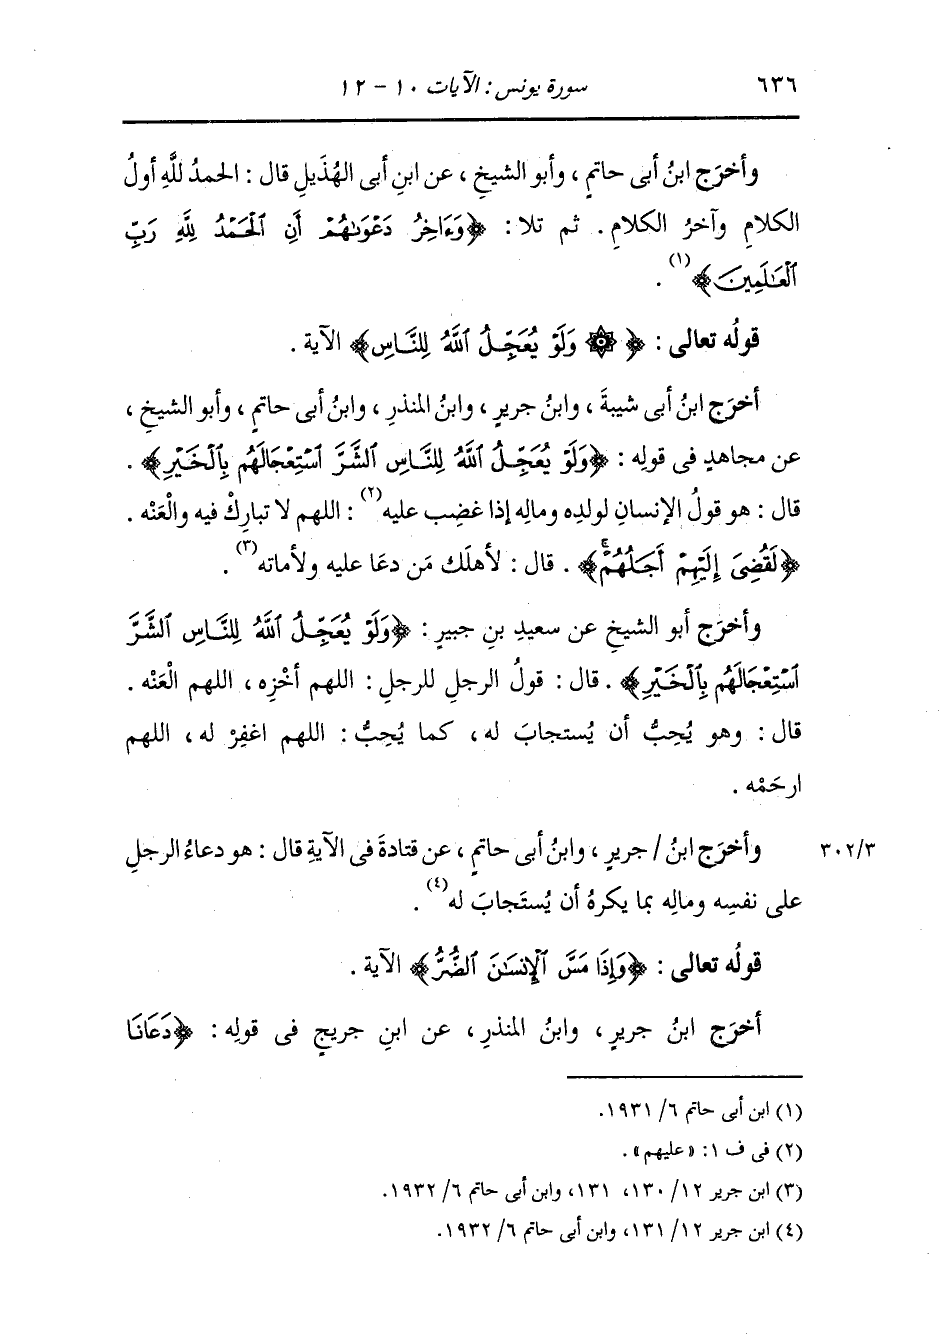 ٦٣٦ سورة يونس : الآيات ١٠ - ١٢
وأخرَج ابنُ أبى حاتمٍ ، وأبو الشيخِ ، عن ابنِ أبى الهُذَيلِ قال : الحمدُ للَّهِ أولُ
الكلامِ وآخرُ الكلامِ . ثم تلا : ﴿وَءَاخِرُ دَعْوَىٰهُمْ أَنِ ٱلْحَمْدُ لِلَّهِ رَبِّ
ٱلْعَٰلَمِينَ﴾(١) .
قولُه تعالى : ﴿ ۞ وَلَوْ يُعَجِّلُ ٱللَّهُ لِلنَّاسِ﴾ الآية .
أخرَج ابنُ أبى شيبةَ ، وابنُ جريرٍ ، وابنُ المنذرِ ، وابنُ أبى حاتمٍ ، وأبو الشيخِ ،
عن مجاهدٍ فى قولِه : ﴿وَلَوْ يُعَجِّلُ ٱللَّهُ لِلنَّاسِ ٱلشَّرَّ ٱسْتِعْجَالَهُم بِٱلْخَيْرِ﴾ .
قال : هو قولُ الإنسانِ لولدِه ومالِه إذا غضِب عليه(٢) : اللهم لا تبارِكْ فيه والْعَنْه .
﴿لَقُضِىَ إِلَيْهِمْ أَجَلُهُمْۖ﴾ . قال : لأهلَك مَن دعَا عليه ولأماته(٣) .
وأخرَج أبو الشيخِ عن سعيدِ بنِ جبيرٍ : ﴿وَلَوْ يُعَجِّلُ ٱللَّهُ لِلنَّاسِ ٱلشَّرَّ
ٱسْتِعْجَالَهُم بِٱلْخَيْرِ﴾ . قال : قولُ الرجلِ للرجلِ : اللهم أخْزِه ، اللهم الْعَنْه .
قال : وهو يُحِبُّ أن يُستجابَ له ، كما يُحِبُّ : اللهم اغفِرْ له ، اللهم
ارحَمْه .
وأخرَج ابنُ / جريرٍ ، وابنُ أبى حاتمٍ ، عن قتادةَ فى الآيةِ قال : هو دعاءُ الرجلِ ٣٠٢/٣
على نفسِه ومالِه بما يكرهُ أن يُستَجابَ له(٤) .
قولُه تعالى : ﴿وَإِذَا مَسَّ ٱلْإِنسَٰنَ ٱلضُّرُّ﴾ الآية .
أخرَج ابنُ جريرٍ ، وابنُ المنذرِ ، عن ابنِ جريجٍ فى قولِه : ﴿دَعَانَا
(١) ابن أبى حاتم ٦/ ١٩٣١.
(٢) فى ف ١: «عليهم» .
(٣) ابن جرير ١٢/ ١٣٠، ١٣١، وابن أبى حاتم ٦/ ١٩٣٢.
(٤) ابن جرير ١٢/ ١٣١، وابن أبى حاتم ٦/ ١٩٣٢.